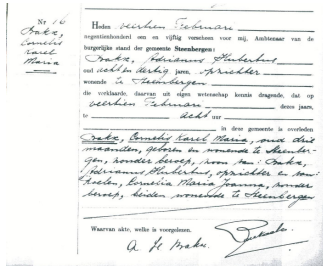 Nr 16
Brakx,
Cornelis
Karel
Maria
Heden veertien Februari
negentienhonderd een en vijftig verscheen voor mij, Ambtenaar van de
burgerlijke stand der gemeente Steenbergen:
Brakx, Adrianus Hubertus,
oud acht en dertig jaren, opzichter
wonende te Steenbergen
die verklaarde, daarvan uit eigen wetenschap kennis dragende, dat op
veertien Februari dezes jaars,
te acht uur
in deze gemeente is overleden
Brakx, Cornelis Karel Maria, oud drie
maanden, geboren en wonende te Steenber-
gen, zonder beroep, zoon van: Brakx,
Adrianus Hubertus, opzichter en van:
Cornelia Maria Joanna, zonder
beroep, beiden wonende te Steenbergen
Waarvan akte, welke is voorgelezen.
A H Brakx.